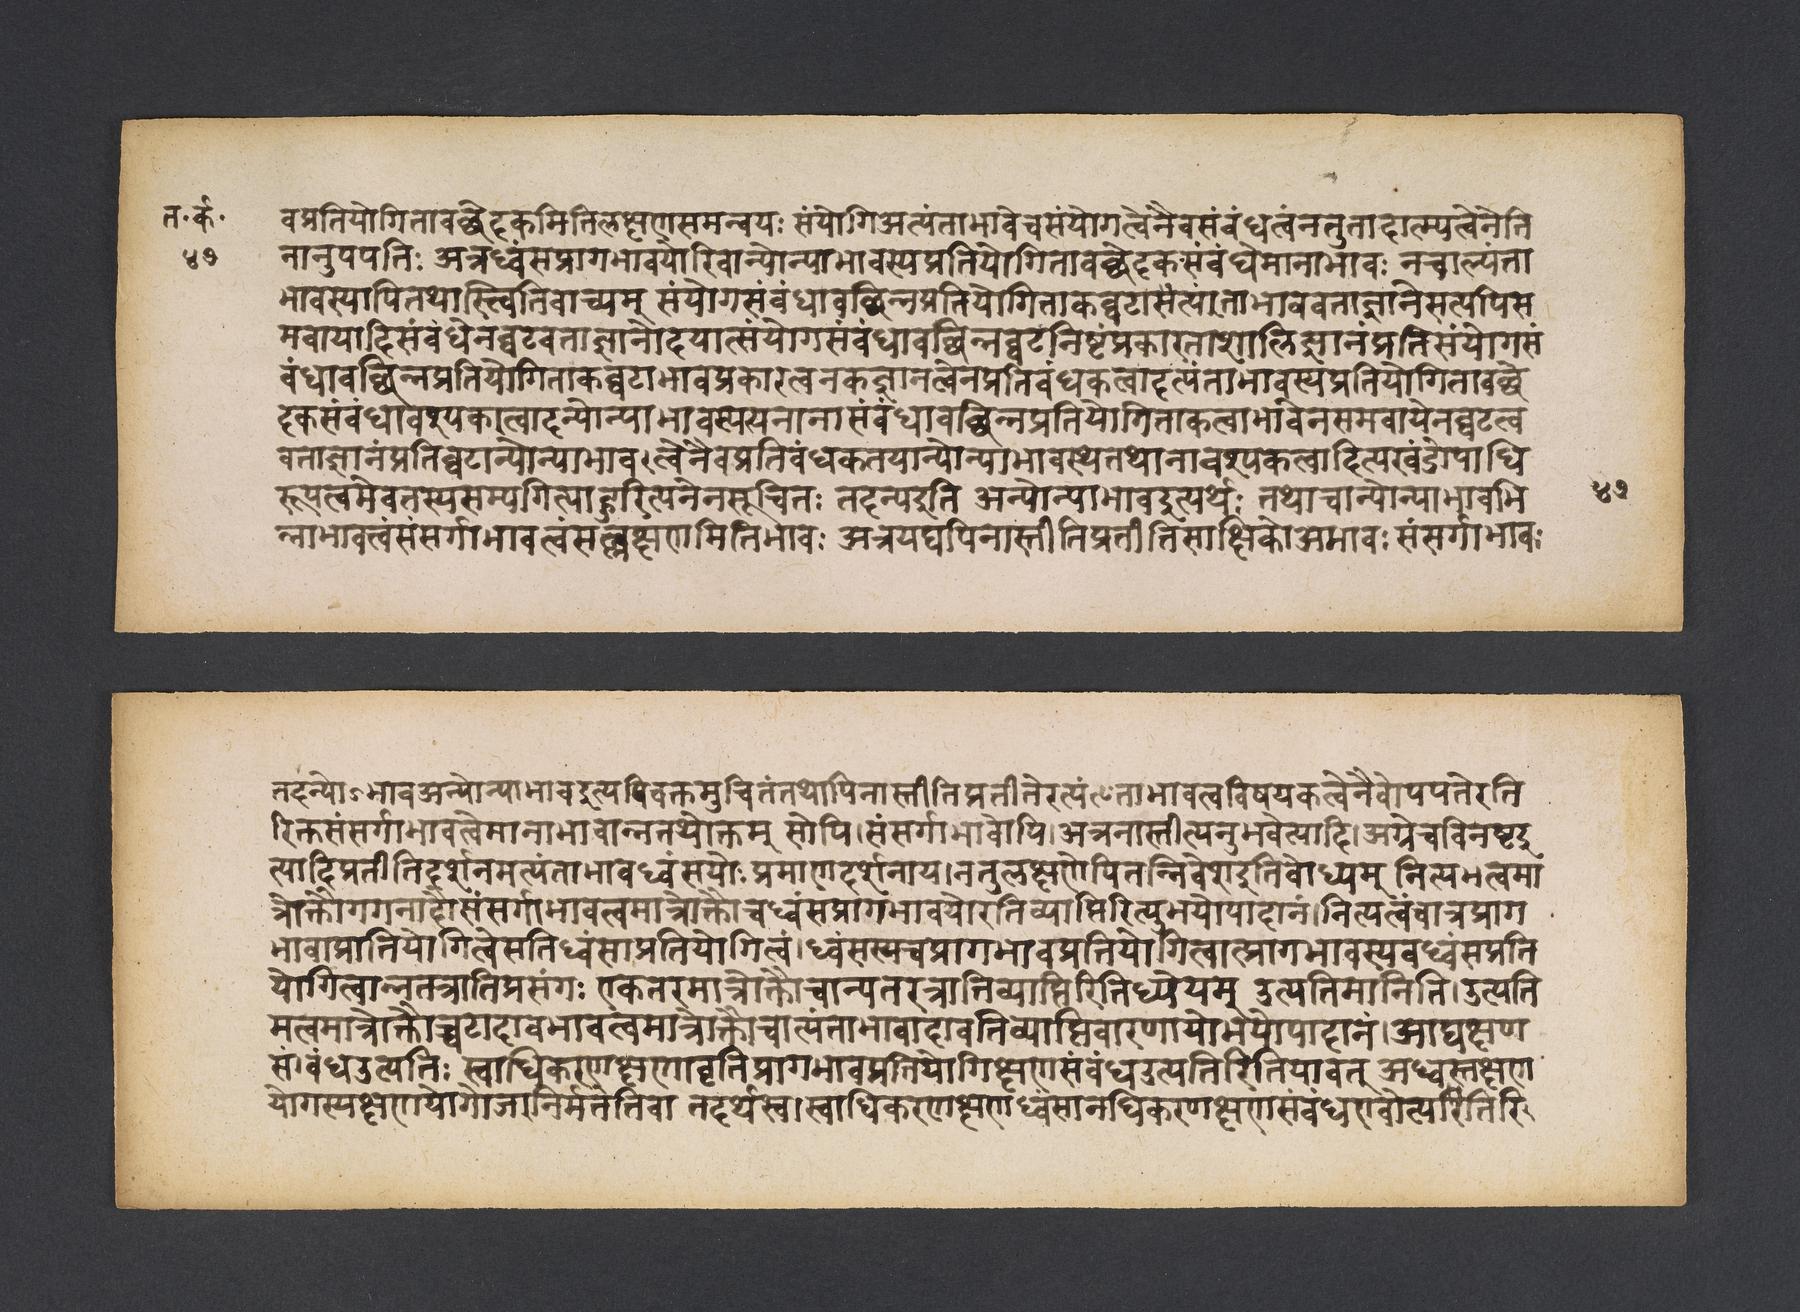 त॰ क॰
४७
वप्रतियोगितावछेदकमितिलक्षणसमन्वयः संयोगिअत्यंताभावेचसंयोगत्वेनैवसंबंधत्वंनतुतादात्म्यत्वेनेति
नानुपपतिः अत्रध्वंसप्रागभावयोरिवान्योन्याभावस्यप्रतियोगितावछेदकसंबंधेमानाभावः नचात्यंता
भावस्यापितथास्त्वितिवाच्यम् संयोगसंबंधावछिन्नप्रतियोगिताकघटासंत्यांताभाववताज्ञानेसत्यपिस
मवायादिसंबंधेनघटवताज्ञानोदयात्संयोगसंबंधावछिन्नघटनिष्टंप्रकारताशालिज्ञानंप्रतिसंयोगसं
बंधावछिन्नप्रतियोगिताकघटाभावप्रकारत्वनकज्ञानत्वेनप्रतिबंधकत्वादत्यंताभावस्यप्रतियोगितावछे
दकसंबंधावश्यकात्वादन्योन्याभावस्यत्यनानासंबंधावछिन्नप्रतियोगिताकत्वाभावेनसमवायेनघटत्व
वताज्ञानंप्रतिघटान्योन्याभाव।त्वेनैवप्रतिबंधकतयान्योन्याभावस्थेतथानावश्यकत्वादित्यखंडोपाधि
रूपत्वमेवतस्यसम्यगित्याहुरित्यनेनसूचितः तदन्यइति अन्योन्याभावइत्यर्थः तथाचान्योन्याभावभि
४७
न्नाभावत्वंसंसर्गाभावत्वंसल्लक्षणमितिभावः अत्रयद्यपिनास्तीतिप्रतीतिसाक्षिकोअभावः संसर्गाभावः
तदन्योऽभावअन्योन्याभावइत्यपिवक्तमुचितंतथापिनास्तीतिप्रतीतेरत्यंताभावत्वविषयकत्वेनैवोपपतेरति
रिक्तसंसर्गाभावत्वेमानाभावान्नतथोक्तम् सोपि।संसर्गाभावोपि।अत्रनास्तीत्यनुभवेत्यादि।अग्रेचविनष्टइ
त्यादिप्रतीतिदर्शनमत्यंताभावध्वंसयोः प्रमाणदर्शनाय।नतुलक्षणेपितन्निवेशइतिबोध्यम् नित्यभत्वमा
त्रोक्तौगगनादौसंसर्गाभावत्वमात्रोक्तौचध्वंसप्रागभावयोरतिव्याप्तिरित्युभयोपादानं।नित्यत्वंवात्रप्राग
भावाप्रातियोगित्वेसतिध्वंसाप्रतियोगित्वं।ध्वंसस्यचप्रागभावप्रतियोगित्वात्प्रागभावस्यवध्वंसप्रति
योगित्वान्नतत्रातिप्रसंगः एकतरमात्रोक्तौचान्यतरत्रातिव्याप्तिरितिध्येयम् उत्पतिमानिति।उत्पति
मत्वमात्रोक्तौघटादावभावत्वमात्रोक्तौचात्यंताभावादावतिव्याप्तिवारणायोभयोपादानं।आद्यक्षण
सं।बंधउत्पतिः स्वाधिकरणक्षणावृतिप्रागभावप्रतियोगिक्षणसंबंधउत्पतिरितियावत् अध्वस्तक्षण
योगस्यक्षणयोगोजानिर्मतेतिवा तदर्थस्व।स्वाधिकरणक्षणध्वंसानधिकरणक्षणसंबंधएवोत्परितिरि